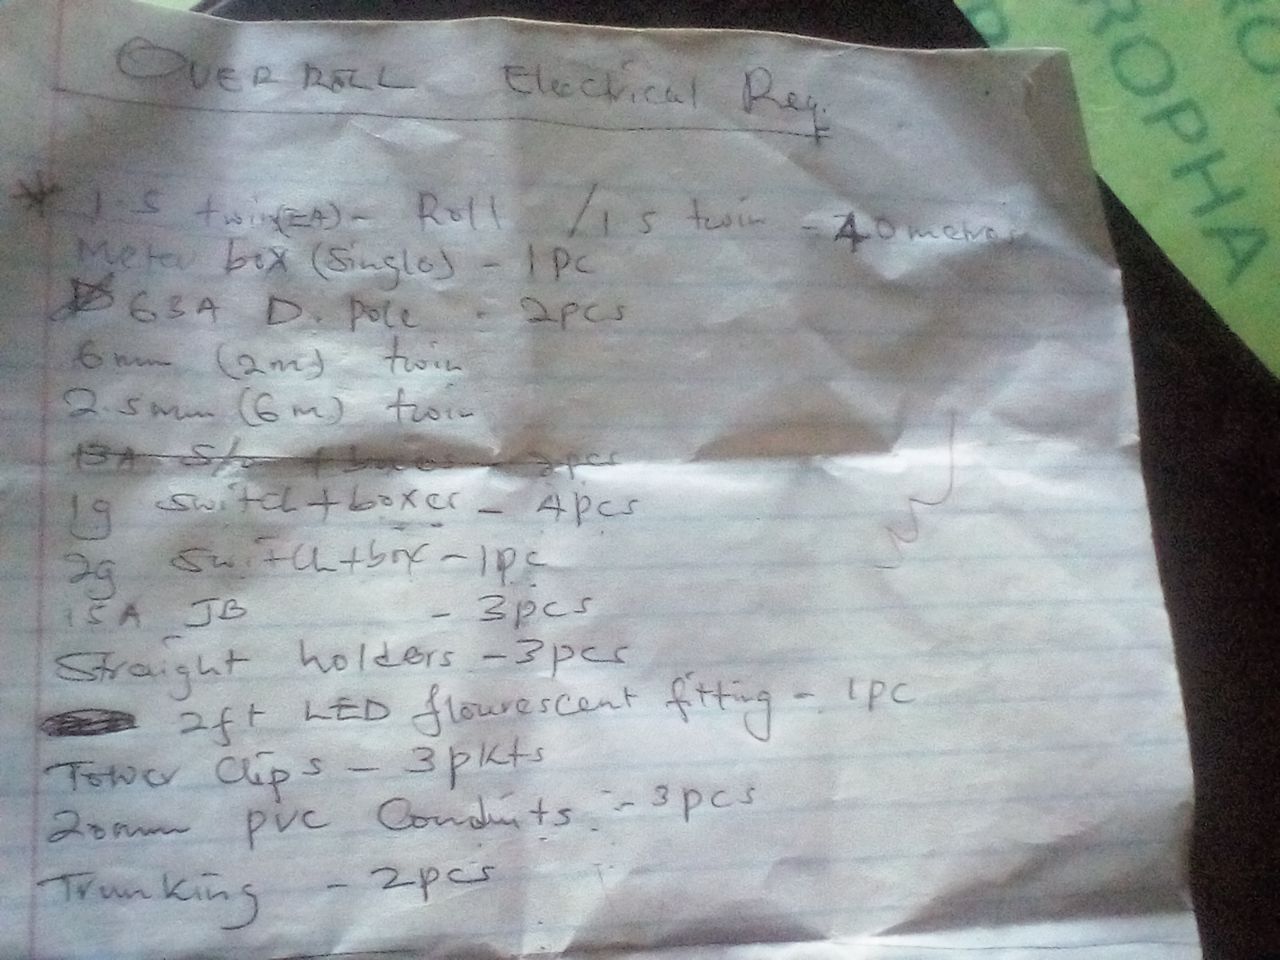 OVER ROLL Electrical Req.
1.5 twin(EA)- Roll /1 5 twin - 40 metres
Meter box (Single) - 1pc
63A D. pole - 2pcs
6mm (2m) twin
2.5mm (6m) twin
13A S/o + boxes - 2pcs
1g switch + boxes - 4pcs
2g switch + box - 1pc
15A JB - 3pcs
Straight holders - 3pcs
2ft LED flourescent fitting - 1pc
Tower Clips - 3pkts
20mm pvc Conduits - 3pcs
Trunking - 2pcs
ROPHA